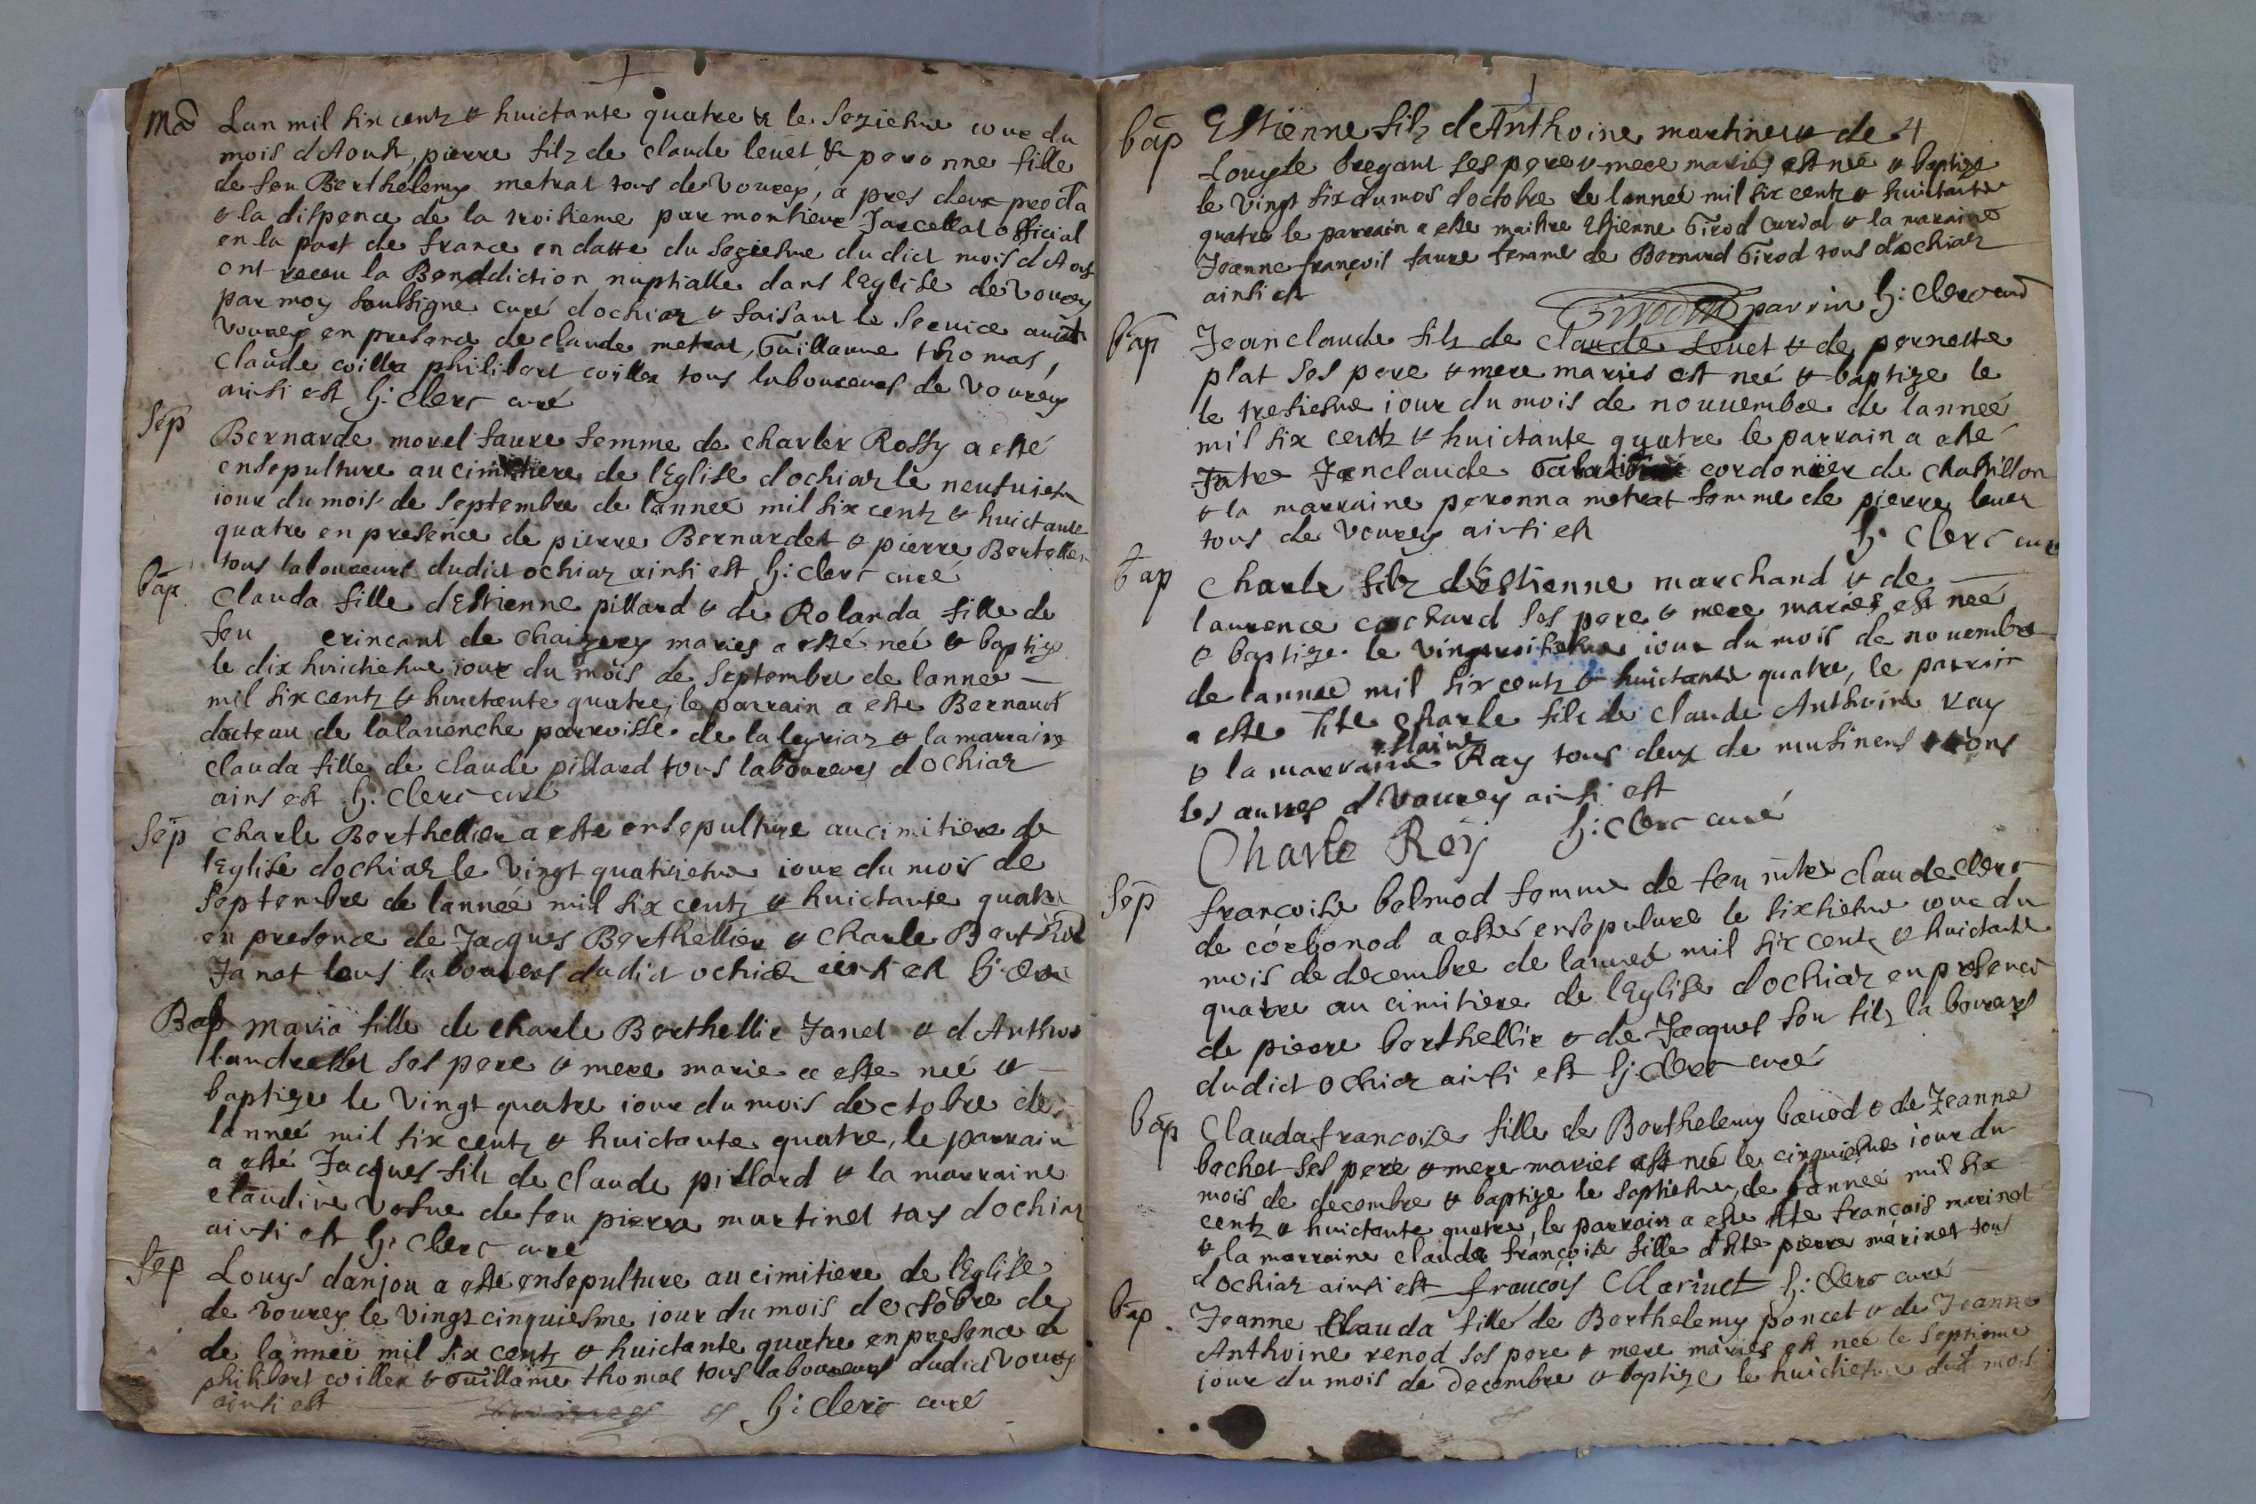 Ma Lan mil six centz & huictante quatre & le seziesme iour du
mois dAoust, pierre filz de claude leuet & peronne fille
de feu Berthelemy metrat tous de Vourey, a pres deux procla
& la dispence de la troisieme par monsieur Jarcellat official
en la part de france en datte du seziesme dudict mois dAoust
ont receu la Benediction nuptialle dans lEglise de Vourey
par moy soubsigne curé dochiaz & faisant le seruice audit
Vourey en presence de claude metrat, Guillaume thomas,
Claude coillex philibert coillex tous laboureurs de Vourey
ainsi est h: Clerc curé
Sep Bernarde morel faure femme de charler Rossy a esté
ensepulture au cimitiere de lEglise dochiaz le neufuiesme
iour du mois de septembre de lannee mil six centz & huictante
quatre en presence de pierre Bernardet & pierre Bertellier
tous laboureurs dudict ochiaz ainsi est h: clerc curé
bap Clauda fille dEstienne pillard & de Rolanda fille de
feu crincant de Chaizery maries a esté neé & baptize
le dix huictiesme iour du mois de septembre de lannee
mil six centz & huictante quatre, le parrain a este Bernard
ducteau de lalauenche parroisse de laleyriaz & la marraine
clauda fille de claude pillard tous laboureurs dochiaz
ains est h: Clerc curé
Sep Charle Berthellier a este ensepulture au cimitiere de
lEglise dochiaz le Vingt quatriesme iour du mois de
septembre de lanneé mil six centz & huictante quatre
en presence de Jacques Berthellier & Charle Berthel
Janet tous laboureurs dudict ochiaz ainsi est h: clerc
Bap Maria fille de charle Berthellie Janet & dAnthoi
landrellat ses pere & mere marie a este neé &
baptize le Vingt quatre iour du mois doctobre de
lanneé mil six centz & huictante quatre, le parrain
a esté Jacques filz de Claude pillard & la marraine
claudine Vefue de feu pierre martinet tous dochiaz
ainsi est h: Clerc curé
Sep Louys danjou a esté ensepulture au cimitiere de lEglise
de Vourey le Vingt cinquiesme iour du mois doctobre de
de lanneé mil six centz & huictante quatre en presence de
philibert coillex & Guillame thomas tous laboureurs dudict Vourey
ainsi est h: Clerc curé
bap Estienne filz dAnthoine martinet & de
Louyse bregant ses pere & mere maries est neé & baptize
le Vingt six du mois doctobre de lanneé mil six centz & huictante
quatre le parrain a este maistre Estienne Girod Curial & la maraine
Jeanne françois faure femme de Bernard Girod tous dochiaz
ainsi est
Girod parrin h: Clerc curé
bap Jeanclaude filz de claude Leuet & de pernette
plat ses pere & mere maries est neé & baptize le
le tresiesme iour du mois de nouuembre de lanneé
mil six centz & huictante quatre le parrain a este
Janclaude cordonier de Chastillon
& la marraine peronna metrat femme de pierre leuet
tous de Vourey ainsi est
h: Clerc curé
bap Charle filz dEstienne marchand & de
laurence cochard ses pere & mere maries est neé
& baptize le Vingtroisiesme iour du mois de nouembre
de lanneé mil six centz & huictante quatre, le parrain
a este hte charle filz de Claude Anthoine Ray
& la marraine estaine Ray tous deux de musinens & tous
les autres dVourey ainsi est
Charle Roy h: Clerc curé
Sep francoise belmod femme de feu mtre claude Clerc
de corbonod a esté ensepulture le sixsiesme iour du
mois de decembre de lanneé mil six centz & huictante
quatre au cimitiere de lEglise dochiaz en presence
de pierre berthellie & de Jacques son filz laboureurs
dudict ochiaz ainsi est h: Clerc curé
bap Claudafrancoise fille de Berthelemy bauod & de Jeanne
bochet ses pere & mere maries est neé le cinquiesme iour du
mois de decembre & baptize le septiesme, de lanneé mil six
centz & huictante quatre, le parrain a este hte françois marinet
& la marraine clauda françoise fille dhte pierre marinet tous
dochiaz ainsi est françois Marinet h: Clerc curé
bap Jeanne Clauda fille de Berthelemy poncet & de Jeanne
Anthoine renod ses pere & mere maries est neé le septieme
iour du mois de decembre & baptize le huictiesme dudit mois